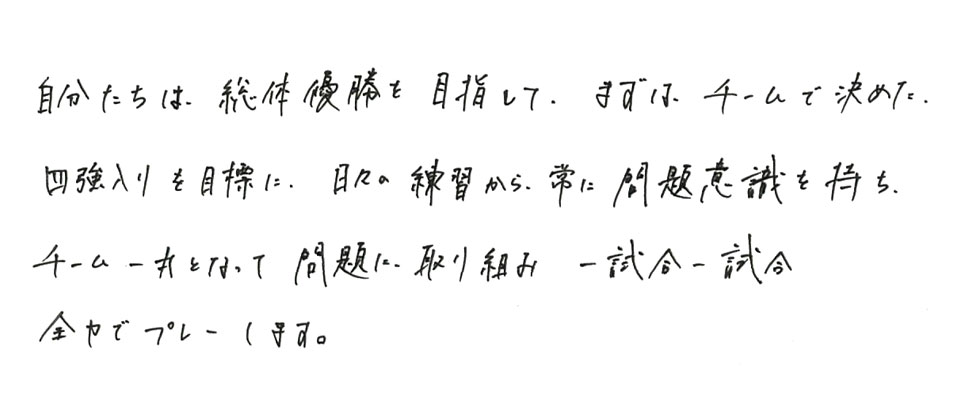 自分たちは、総体優勝を目指して、まずは、チームで決めた、
四強入りを目標に、日々の練習から、常に問題意識を持ち、
チーム一丸となって問題に、取り組み 一試合一試合
全力でプレーします。